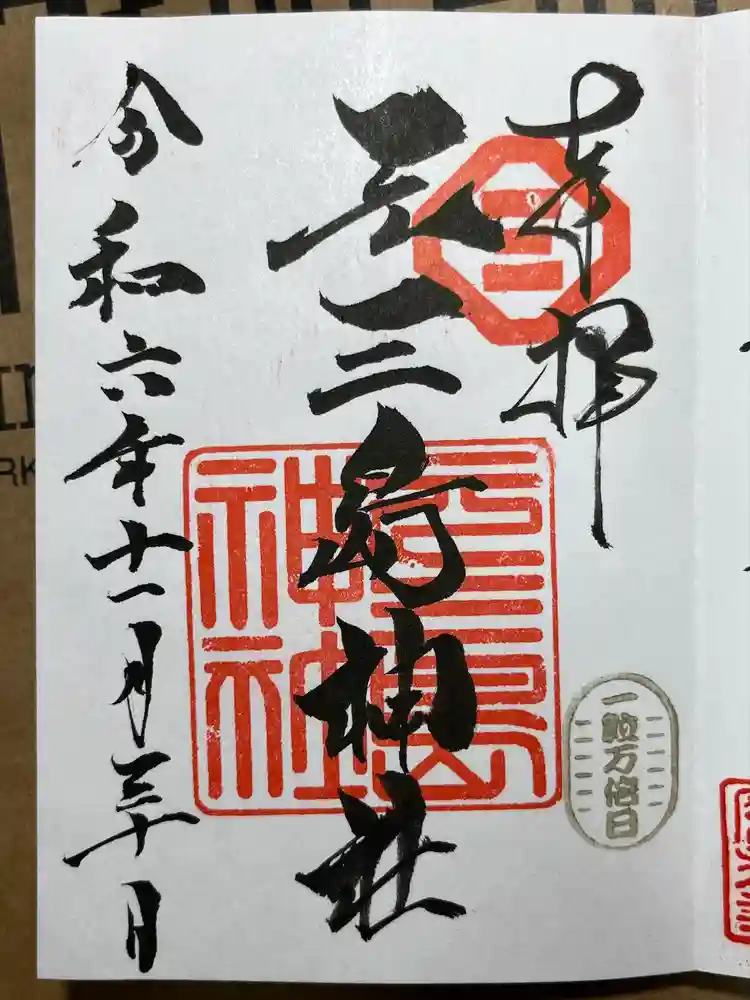 奉拝
三
元三島神社
元三島
神社
一粒万倍日
令和六年十一月三十日